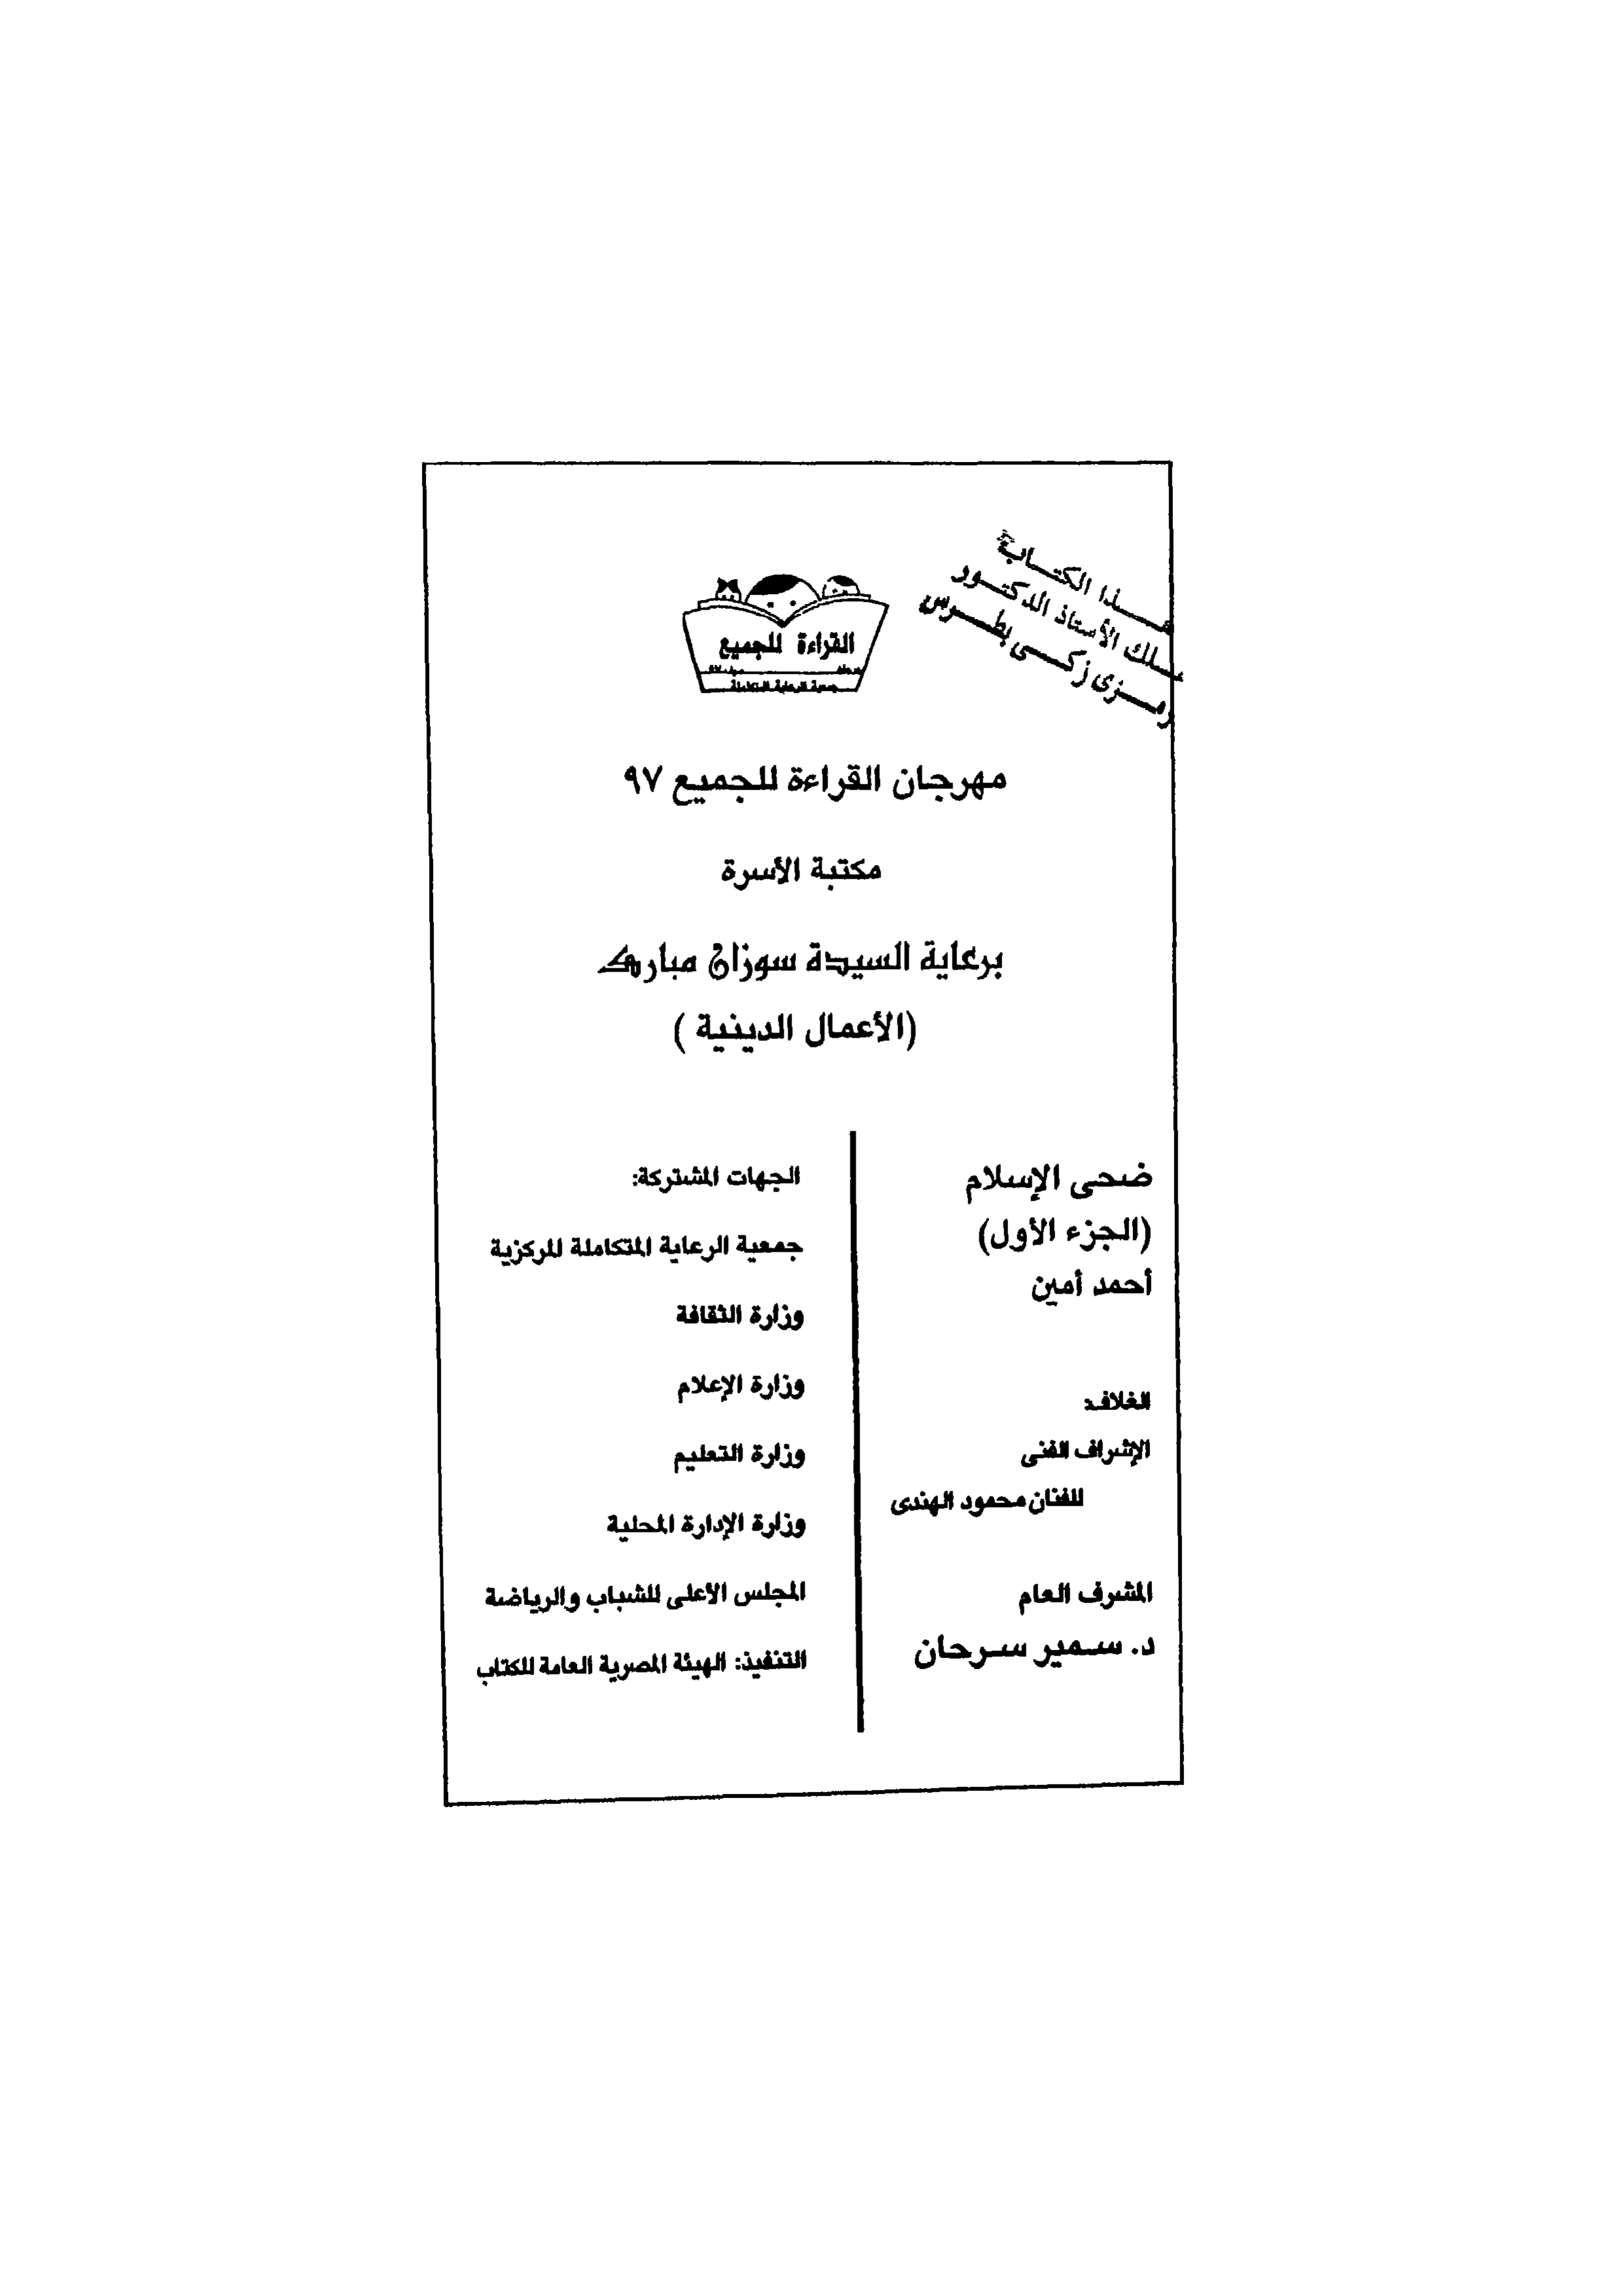 هـذا الكتـاب
ملك الأستاذ الدكتـور
رمـزى زكـى بطـرس
القراءة للجميع
جمعية الرعاية المتكاملة
مهرجان القراءة للجميع ٩٧
مكتبة الأسرة
برعاية السيدة سوزان مبارك
(الأعمال الدينية )
ضحى الإسلام
(الجزء الأول)
أحمد أمين
الغلاف:
الإشراف الفنى
للفنان محمود الهندى
المشرف العام
د. سمير سرحان
الجهات المشتركة:
جمعية الرعاية المتكاملة المركزية
وزارة الثقافة
وزارة الإعلام
وزارة التعليم
وزارة الإدارة المحلية
المجلس الأعلى للشباب والرياضة
التنفيذ: الهيئة المصرية العامة للكتاب